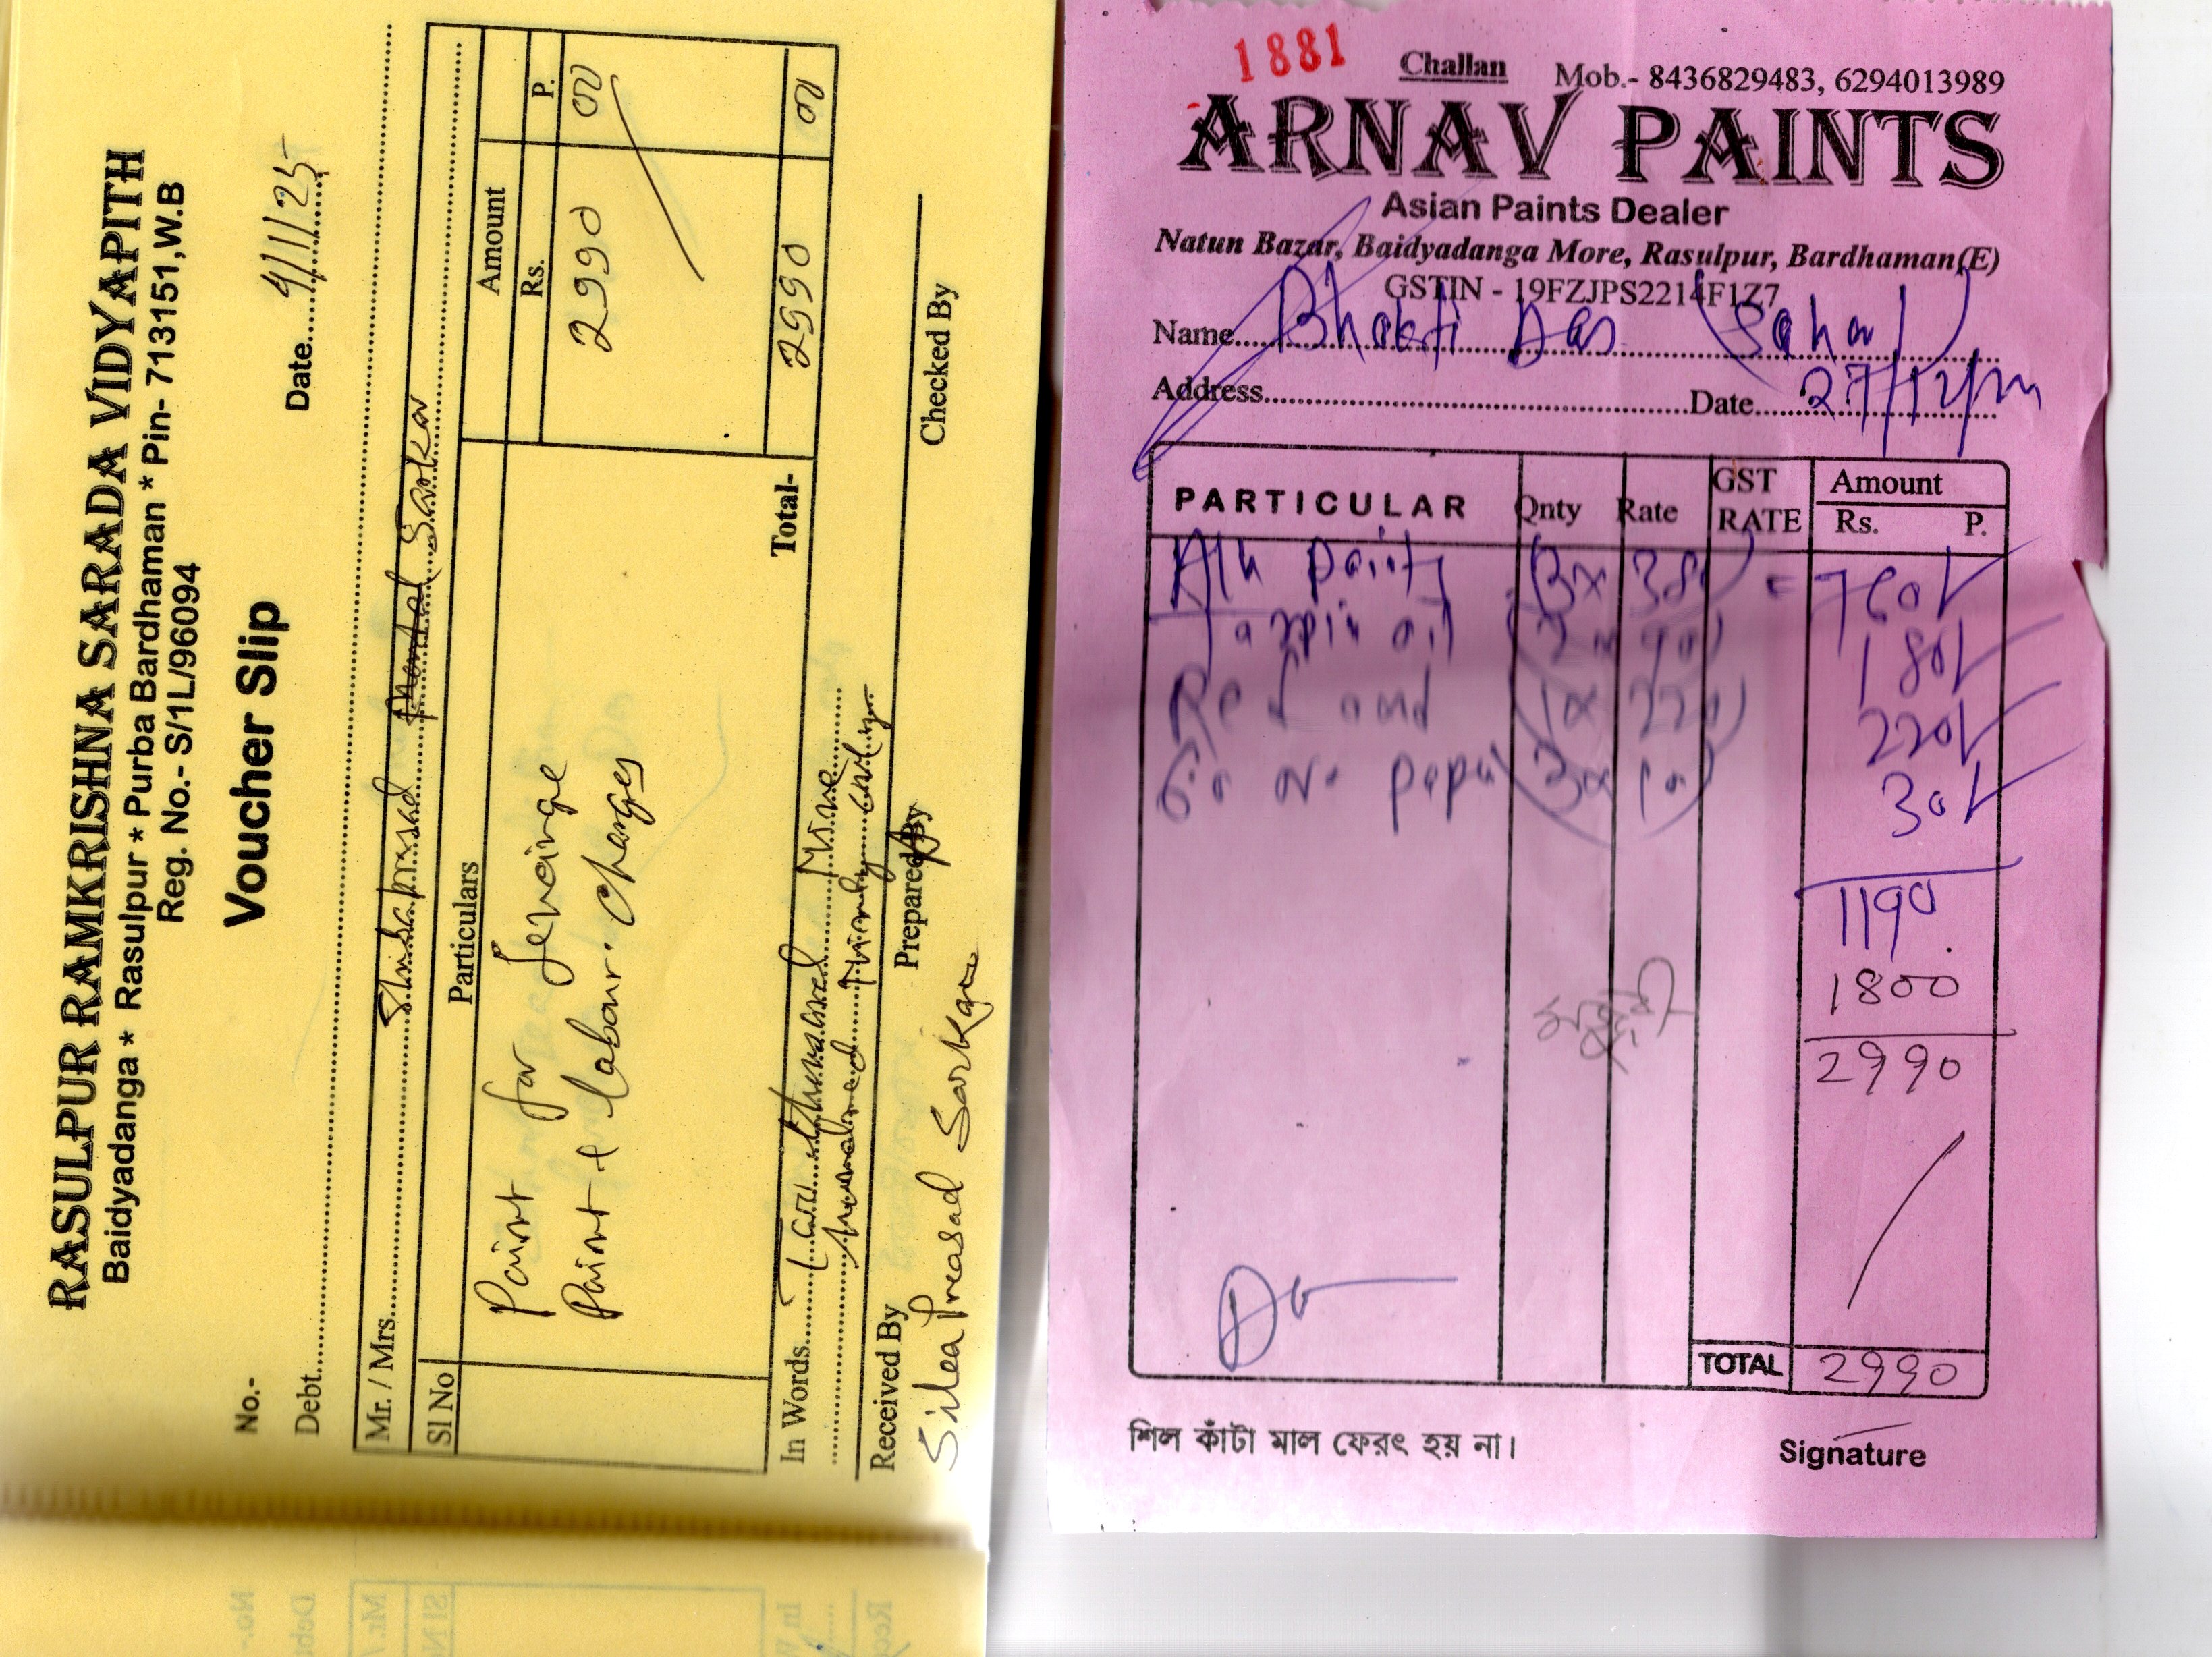 RASULPUR RAMKRISHNA SARADA VIDYAPITH
Baidyadanga * Rasulpur * Purba Bardhaman * Pin- 713151,W.B
Reg. No.- S/1L/96094
Voucher Slip
No.-
Date.....4/1/25
Debt.
Mr. / Mrs. Shibaprasad Sarkar
Sl No Particulars Amount
Rs. P.
Paint for Fencinge 2990 00
Paint & labour charges
Total- 2990 00
In Words. Two thousand Nine
hundred Ninety only
Received By Prepared By Checked By
Silea Preasad Sarkar
1881 Challan Mob.- 8436829483, 6294013989
ARNAV PAINTS
Asian Paints Dealer
Natun Bazar, Baidyadanga More, Rasulpur, Bardhaman(E)
GSTIN - 19FZJPS2214F1Z7
Name Bhakti Das (Sahar)
Address Date 27/12/
PARTICULAR Qnty Rate GST RATE Amount
Rs. P.
paint 380 = 760/
Tarpin oil (2 x 90) 180/
Red (1 x 220) 220/
No paper (3 x 10) 30/
1190
1800
2990
TOTAL 2990
শিল কাঁটা মাল ফেরৎ হয় না।
Signature